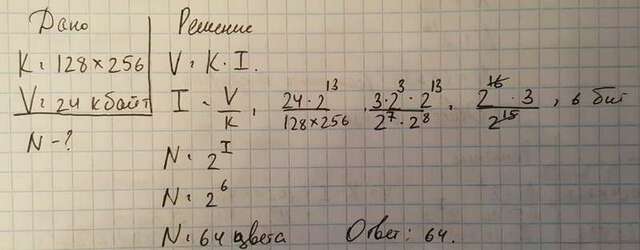 Дано
K = 128 × 256
V = 24 кбайт
N - ?
Решение
V = K · I.
I = V/K = 24 · 2¹³/128 × 256 = 3 · 2³ · 2¹³/2⁷ · 2⁸ = 2¹⁶ · 3/2¹⁵ = 6 бит
N = 2ᴵ
N = 2⁶
N = 64 цвета Ответ: 64.